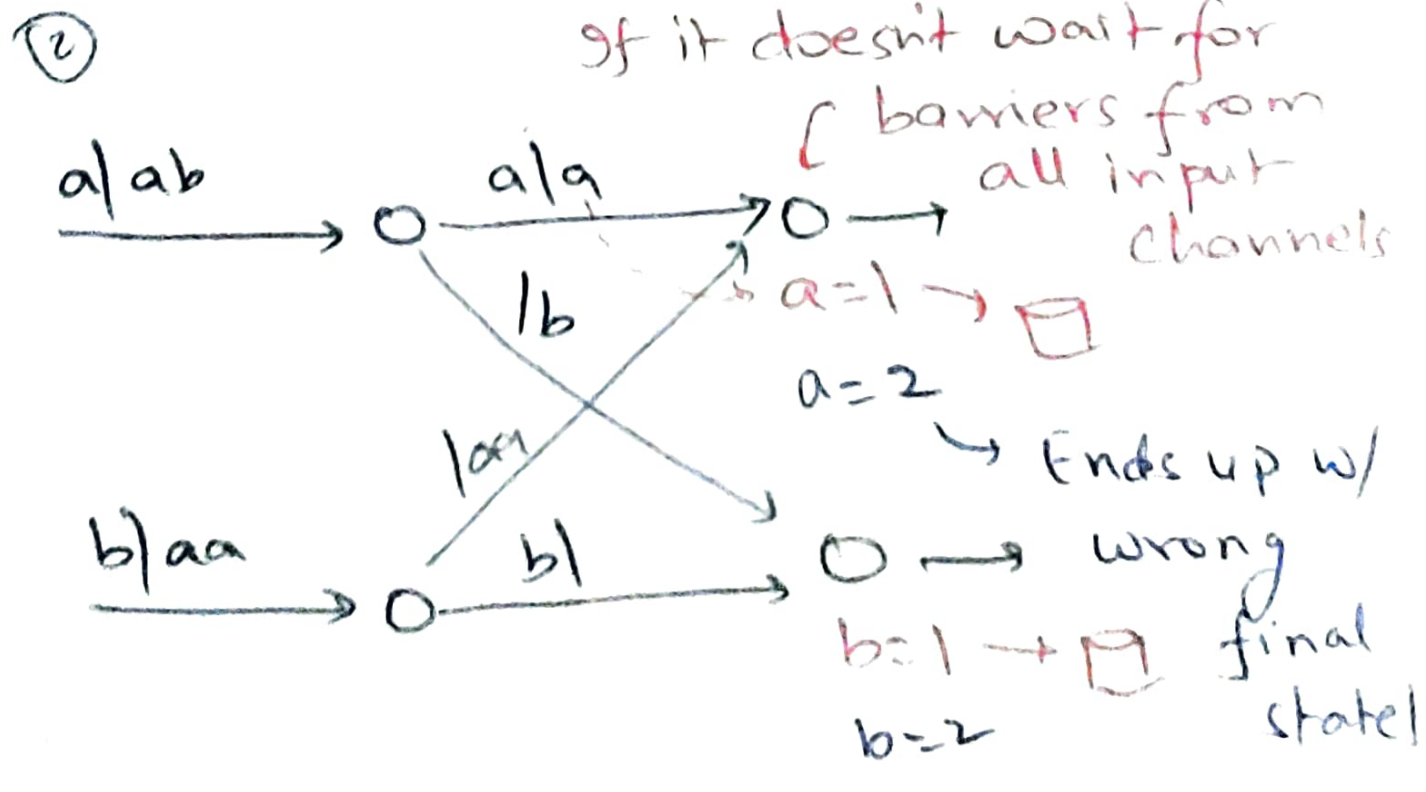 2
If it doesn't wait for
barriers from
all input
channels
a|ab
a|a
|b
a=1
a=2
Ends up w/
wrong
final
state!
|aa
b|aa
b|
b=1
b=2